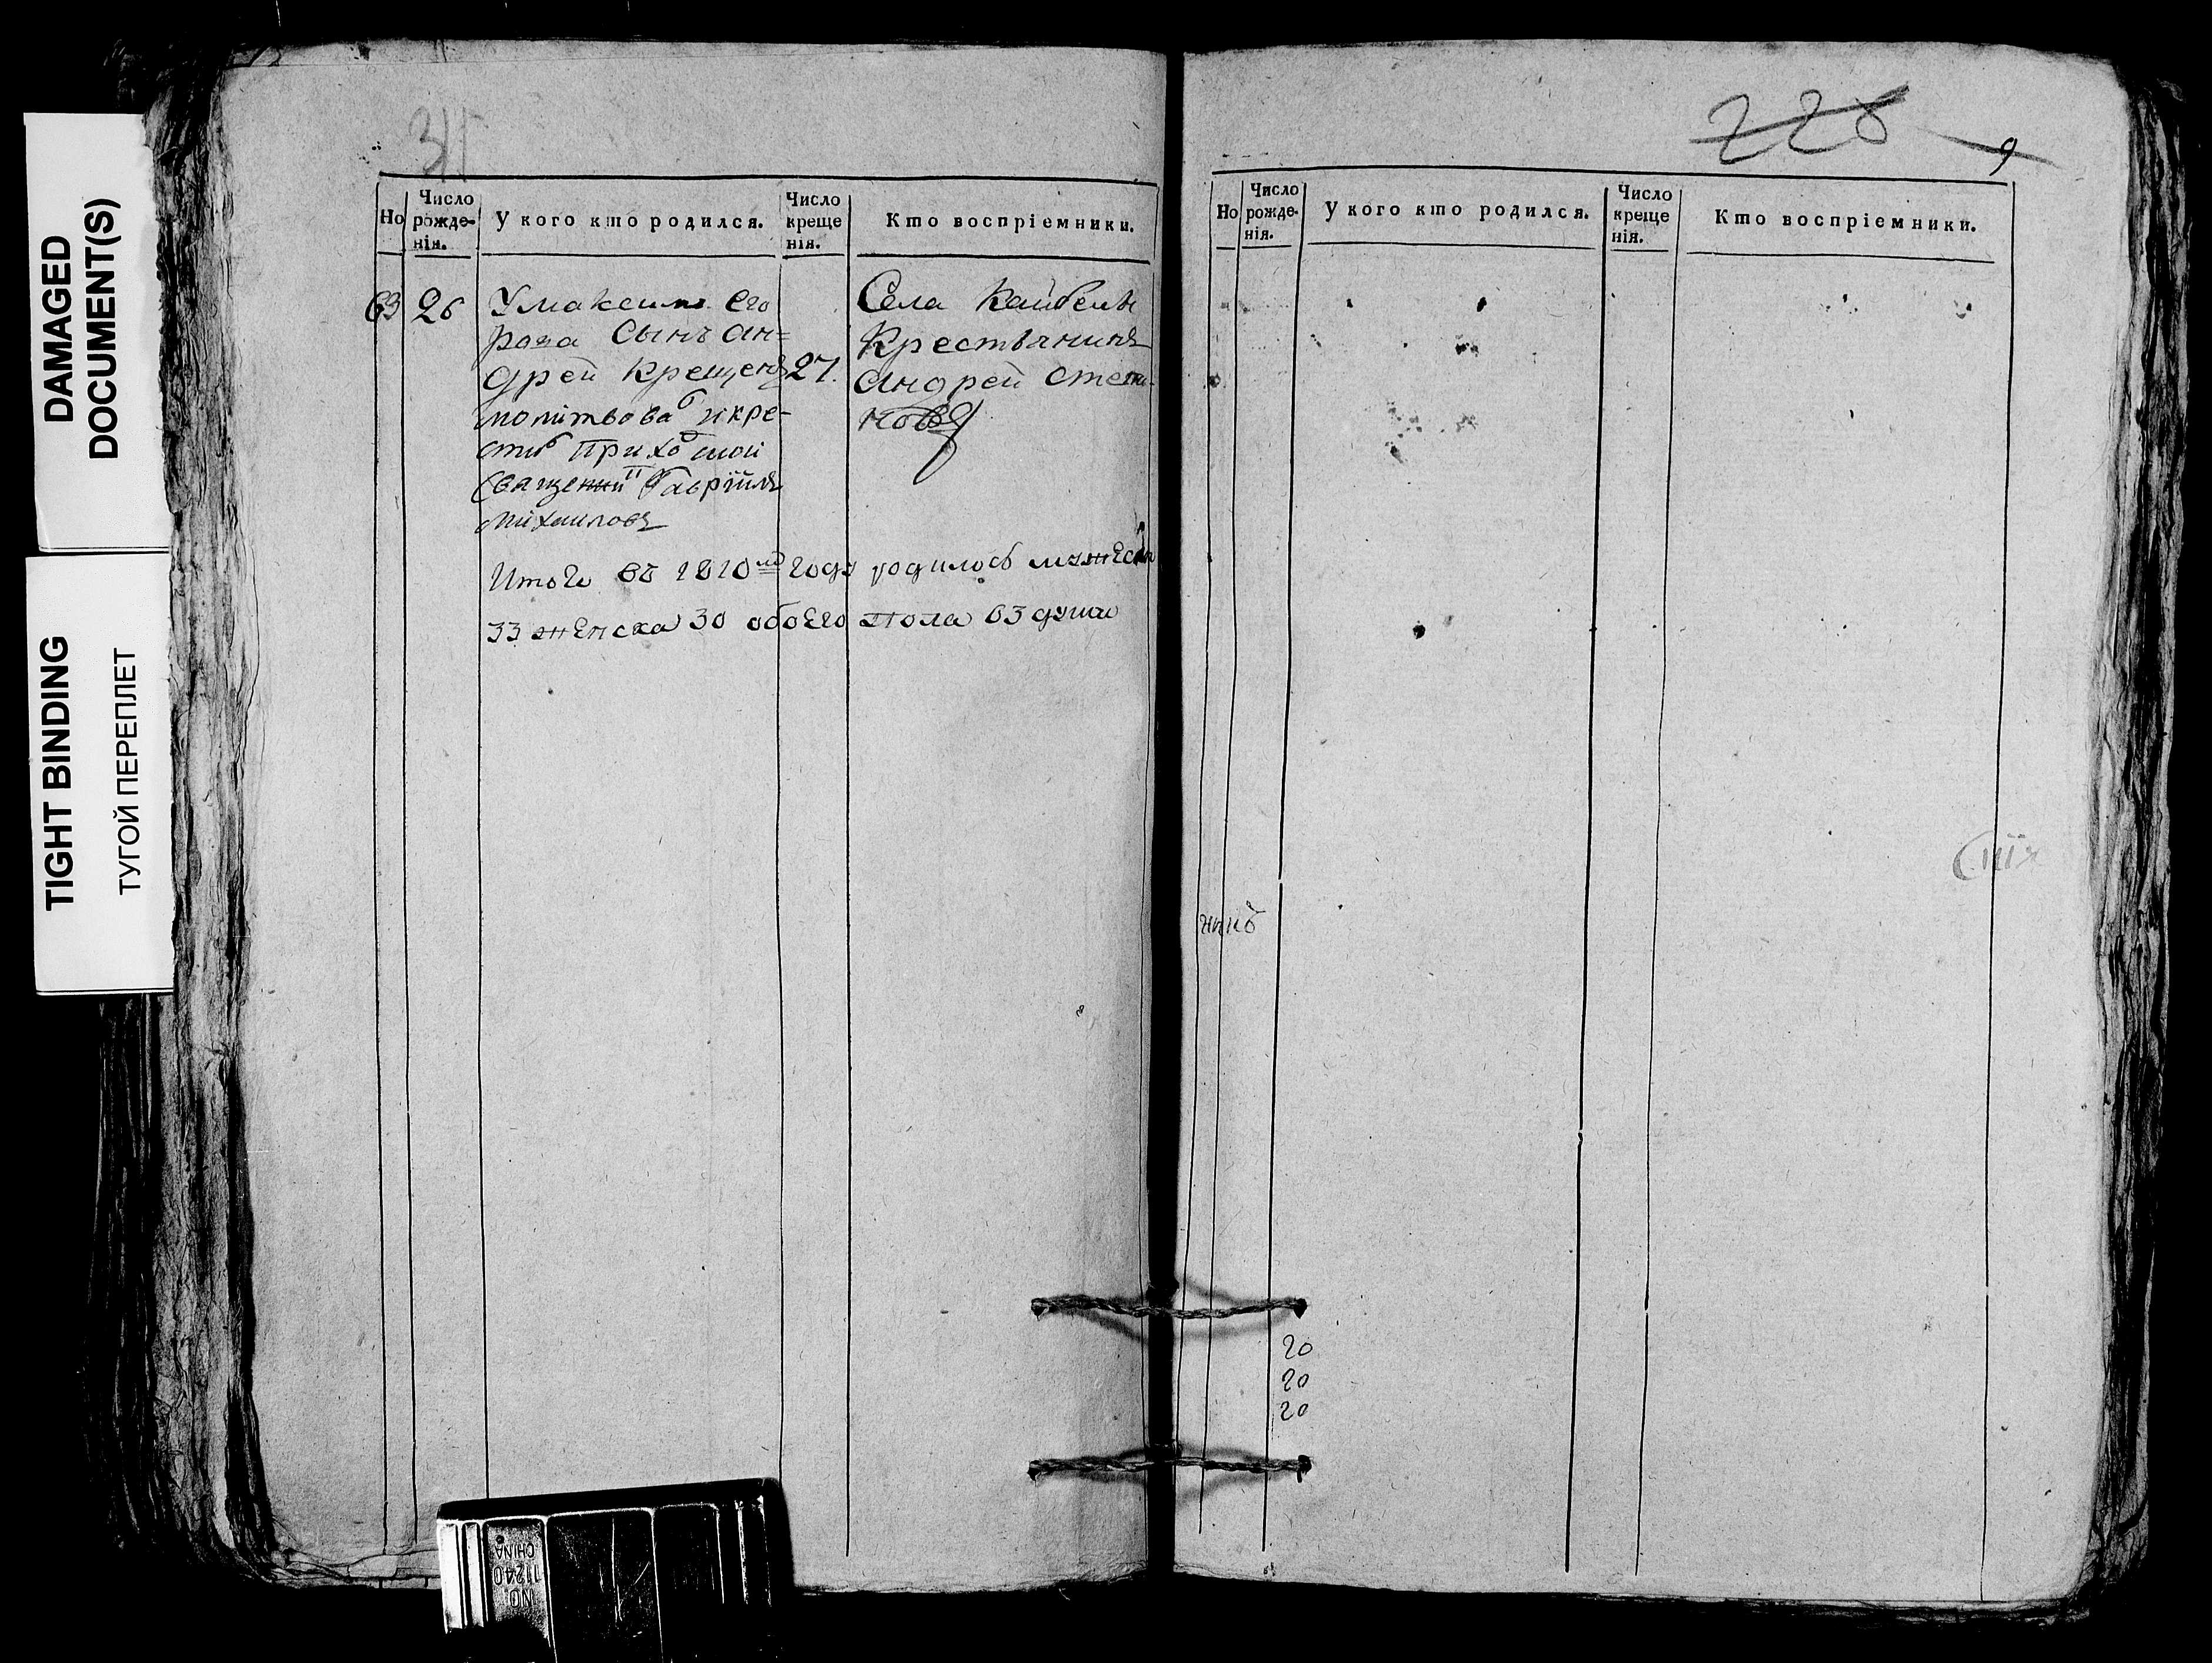 DAMAGED
DOCUMENT(S)
TIGHT BINDING
ТУГОЙ ПЕРЕПЛЕТ
Но
Число рожде-нія.
У кого кто родился.
Число креще нія.
Кто воспріемники.
63 26 У максима Его
рова Сынъ Ан=
дрей Крещенъ 27.
молитвова и кре-
стиб приход ской
Священни Гаврїилъ
михаиловъ
Села Кайбелы
Крестьянинъ
Андрей Степа-
новъ
Итого въ 1810мъ году родилось мужеска
33 женска 30 обоего пола 63 души
228
9
Но
Число рожде-нія.
У кого кто родился.
Число креще нія.
Кто воспріемники.
никъ
20
20
20
NO.
11240
CHINA